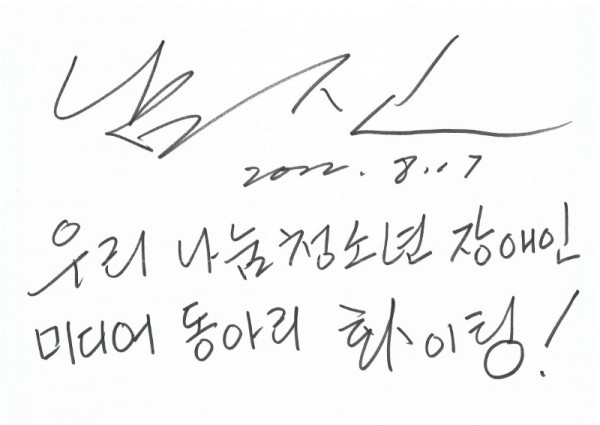 남진
2022. 8. 17
우리 나눔청소년 장애인
미디어 동아리 화이팅!